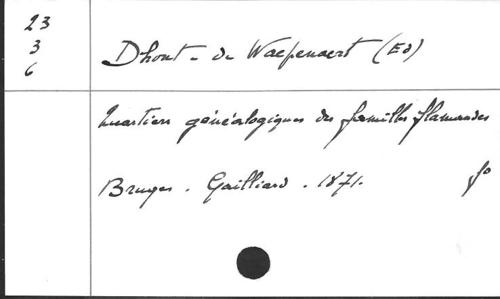 23
3
6
Dhont - de Waepenaert (Ed)
Quartiers généalogiques des familles flamandes
Bruges. Gailliard. 1871. fo